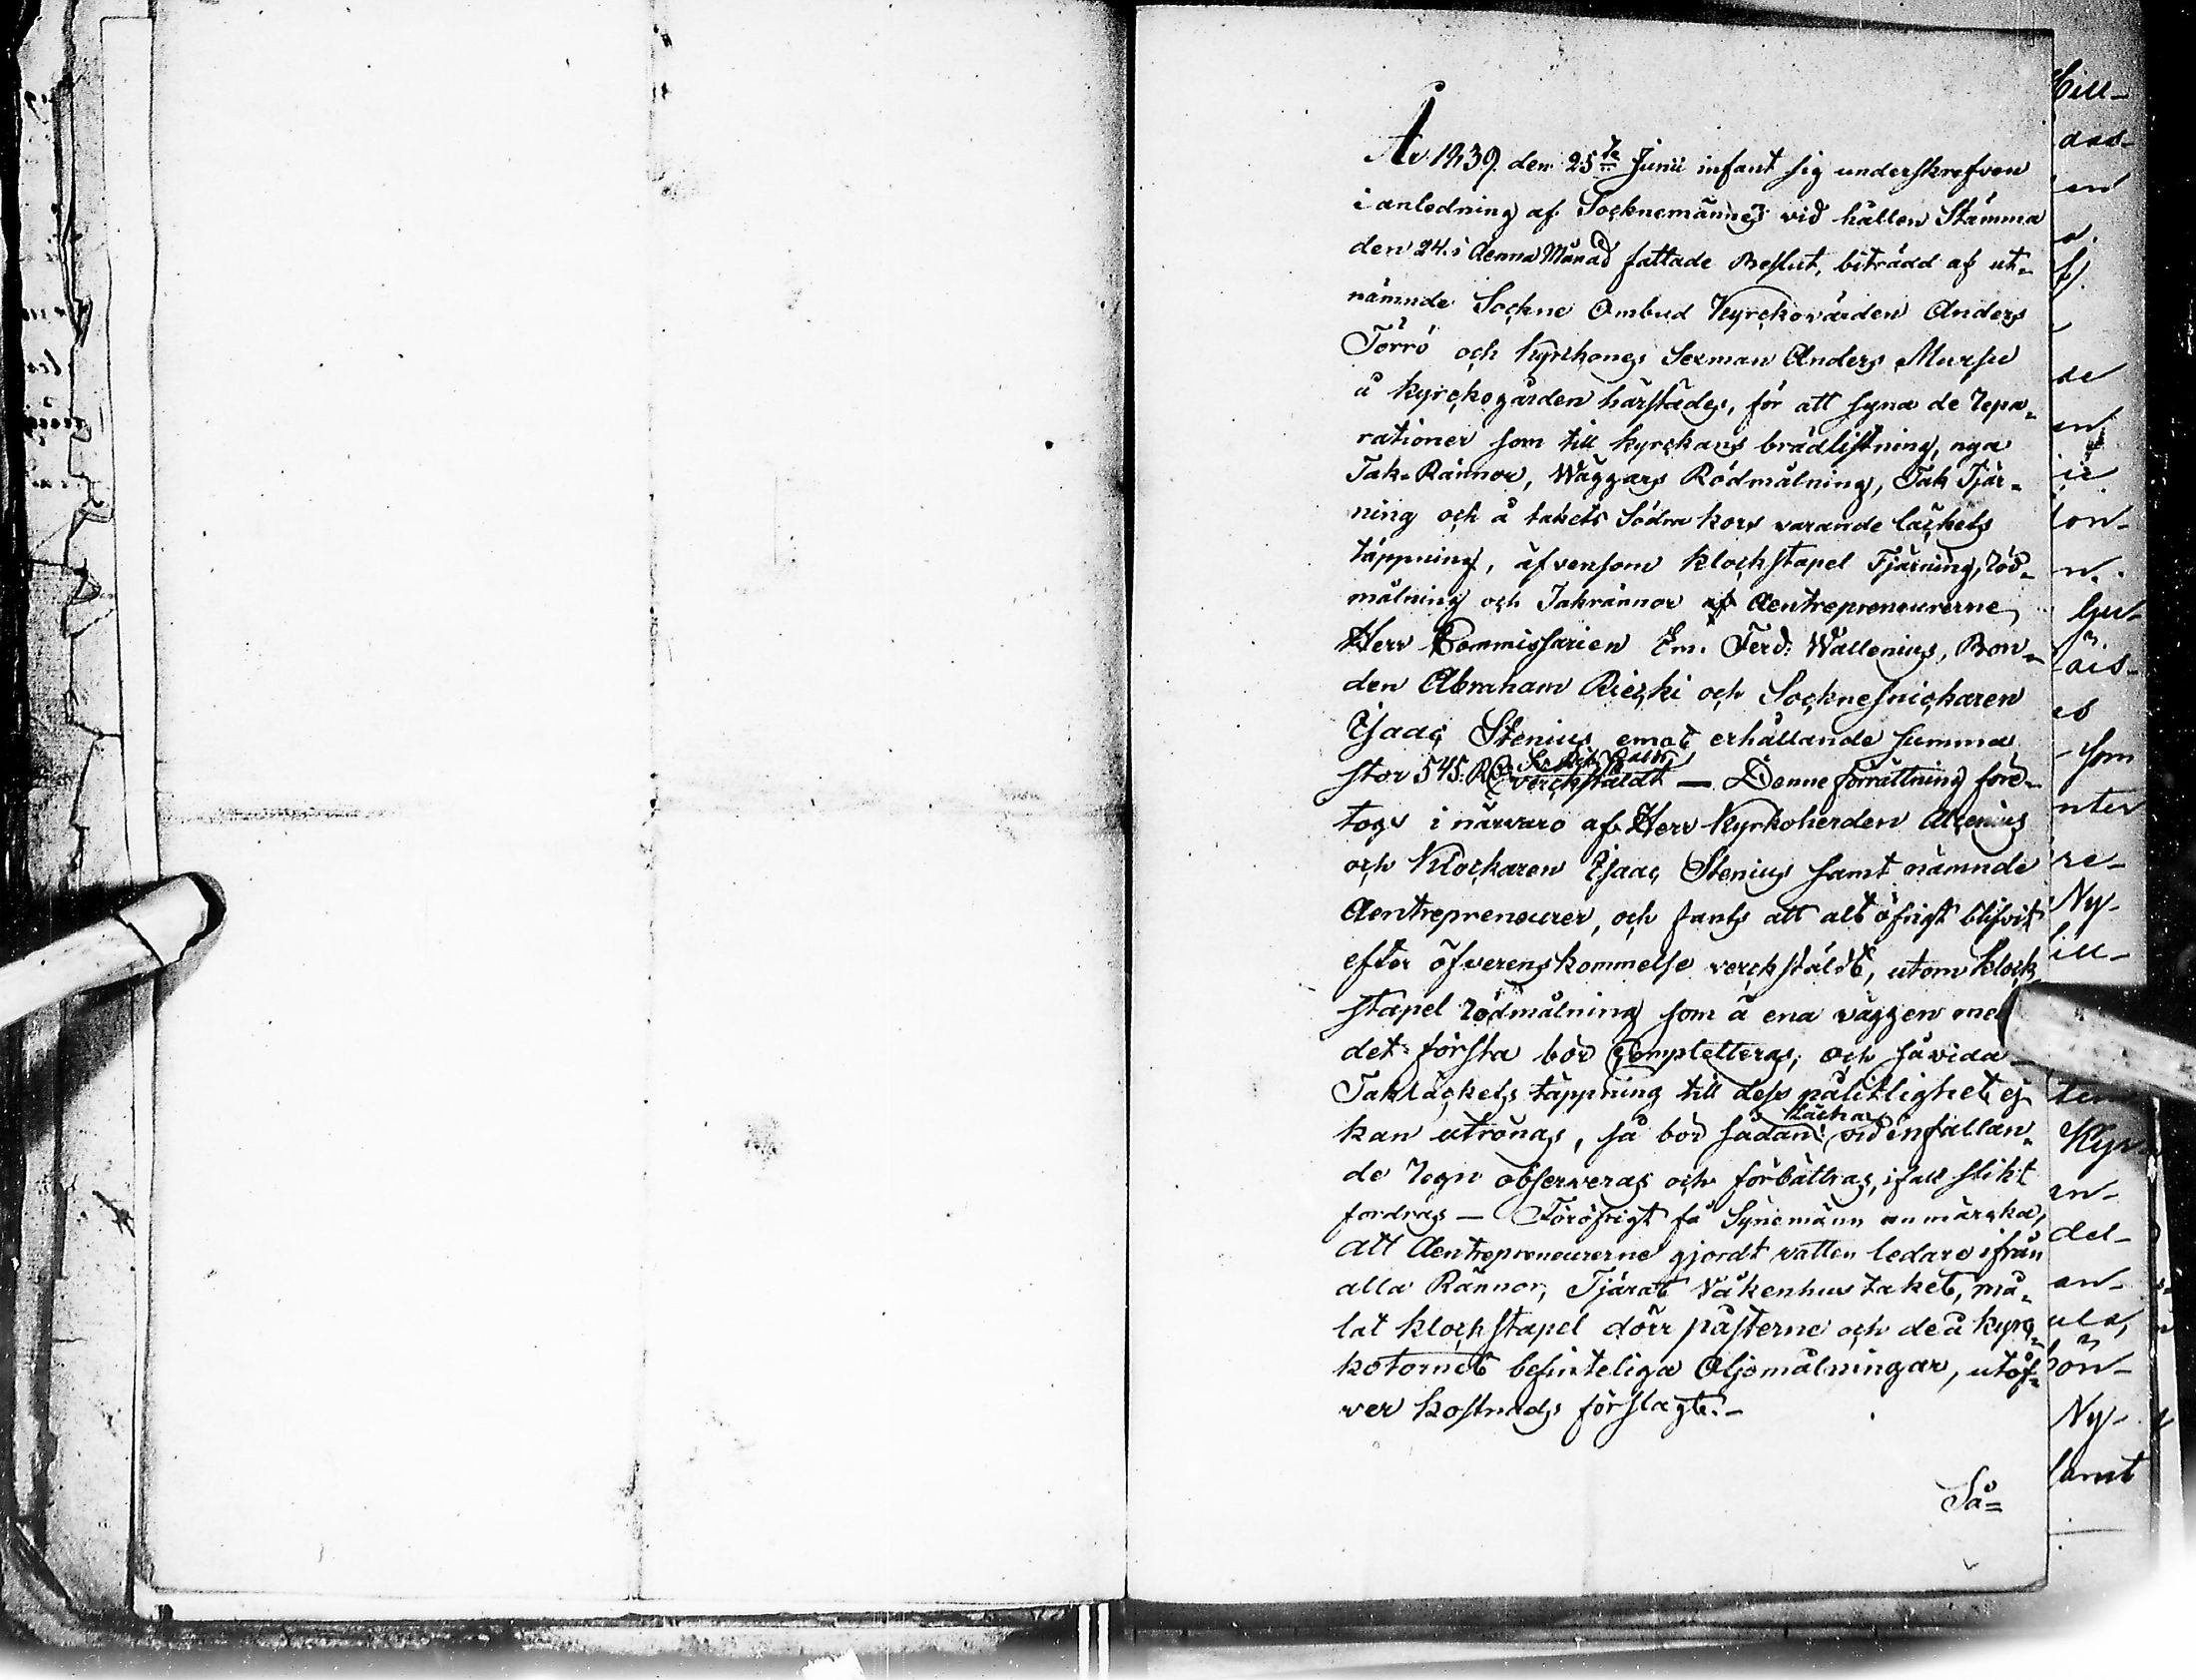 År 1839. den 25te Junii infant sig underskrefven
i anledning af Socknemännes vid hållen Stämma
den 24. i denna Månad fattade Beslut, biträdd af ut-
nämnde Sockne Ombud Kyrckovärden Anders
Törrö och kyrckones Sexman Anders Mursu
å kyrckogården härstädes, för att syna de repa-
rationer som till kyrckans brädlistning, nya
Tak-Rännor, Wäggars Rödmålning, Tak Tjär-
ning och å takets Södra kors varande läckets
täppning, äfvensom klockstapel Tjärning, röd-
målning och Takrännor af Aentrepreneurerne
Herr Commissarien Em. Ferd: Wallenius, Bon-
den Abraham Rieski och Socknesnickaren
Isaac Stenius emot erhållande summa
stor 545. Rb verckstäldt — Denne förrättning före-
togs i närvaro af Herr Kyrkoherden
och Klockaren Isaac Stenius samt nämnde
Aentrepreneurer, och fants att alt öfrigt blifvit
efter öfverenskommelse verckstäldt, utom klock
stapel rödmålning som å ena väggen med
det första bör Completteras; och såvida
Takläckets täppning till dess pålitlighet ej
kan utrönas, så bör sådan läcka vid infallan-
de regn observeras och förbättras, ifall slikt
fordras — Föröfrigt få Synemänn anmärcka,
att Aentrepreneurerne gjordt vatten ledare ifrån
alla Rännor, Tjärat Våkenhus taket, må-
lat klockstapel dörr påsterne och de å kyrc-
kotornet befinteliga Oljomålningar, utöf-
ver kostnads förslagt. -
Så=
till-
en
de
en
on-
n.
es
som
nter
re-
Ny-
ill-
Kyr
en-
del-
an-
Ny-
samt